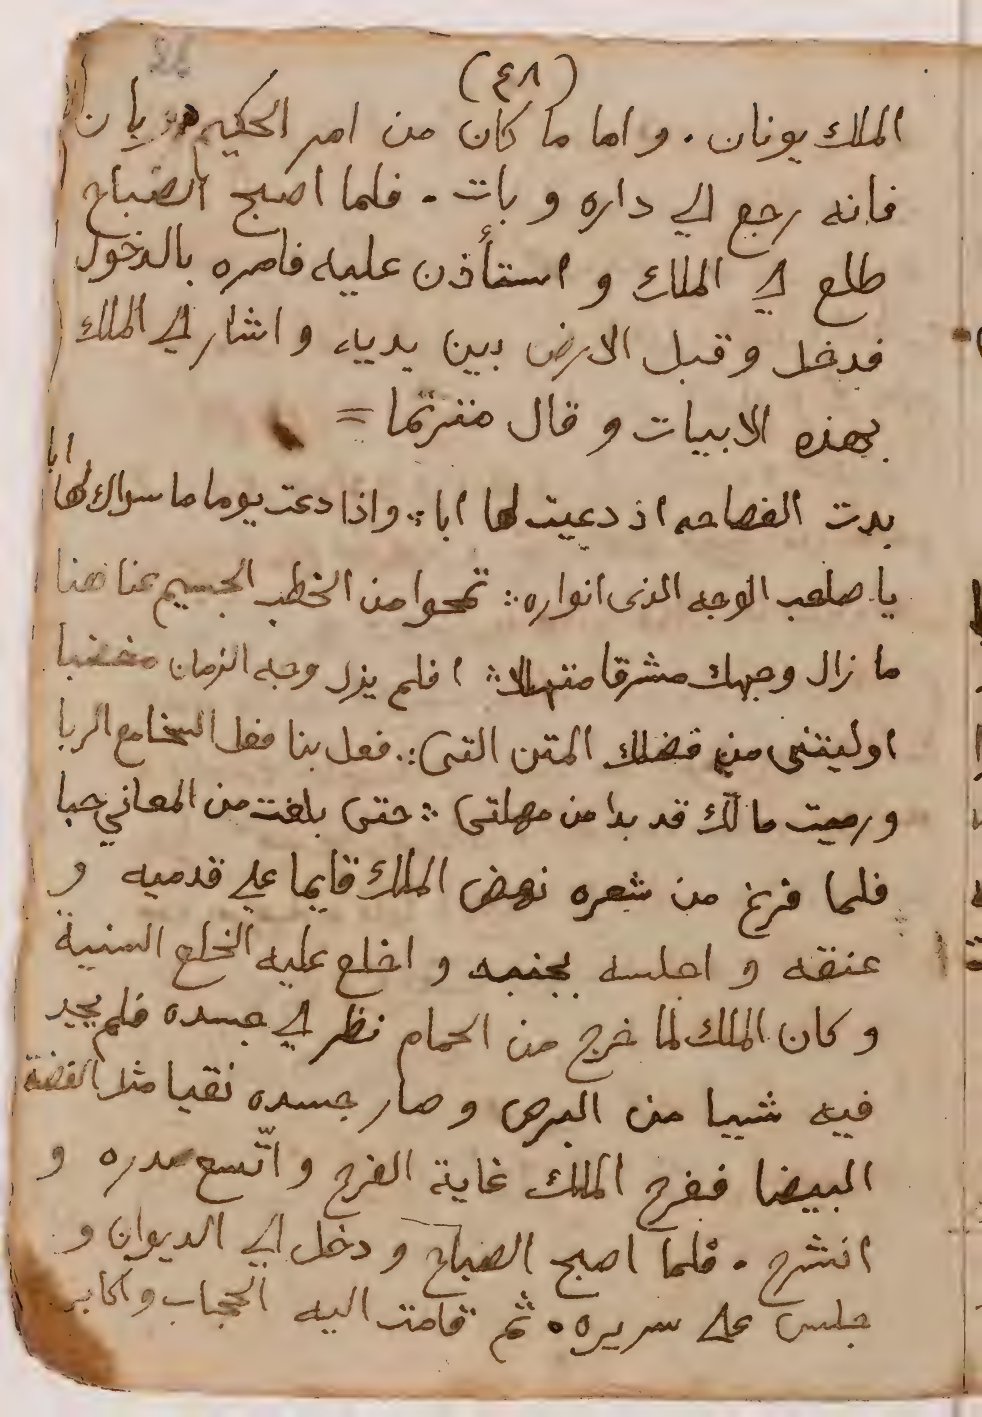 (٤٨)
الملك يونان . و اما ما كان من امر الحكيم رويان
فانه رجع الي داره و بات . فلما اصبح الصباح
طلع الي الملك و استأذن عليه فامره بالدخول
فدخل و قبل الارض بين يديه و اشار الي الملك
بهذه الابيات و قال مترنما =
بدت الفصاحه اذ دعيت لها ابا ∴ واذا دعت يوما ما سواك لها ابا
يا صاحب الوجه الذى انواره ∴ تمحوا من الخطب الجسيم
ما زال وجهك مشرقا متهللا ∴ افلم يزل وجه الزمان مغضبا
اوليتنى من فضلك المنن التى ∴ فعل بنا فعل السخا مع الربا
ورميت مالك قد بدا من مهلتى ∴ حتى بلغت من المعاني حبا
فلما فرغ من شعره نهض الملك قايما علي قدميه و
عنقه و اجلسه بجنبه و اخلع عليه الخلع السنية
و كان الملك لما خرج من الحمام نظر الي جسده فلم يجد
فيه شييا من البرص و صار جسده نقيا مثل الفضة
البيضا ففرح الملك غاية الفرح و اتّسع صدره و
انشرح . فلما اصبح الصباح و دخل الي الديوان و
جلس على سريره . ثم قامت اليه الحجاب و اكابر